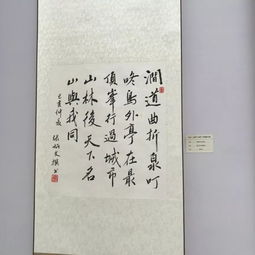 澗道曲折泉叮
咚鳥外亭在最
頂峯行過城市
山林後天下名
山與我同